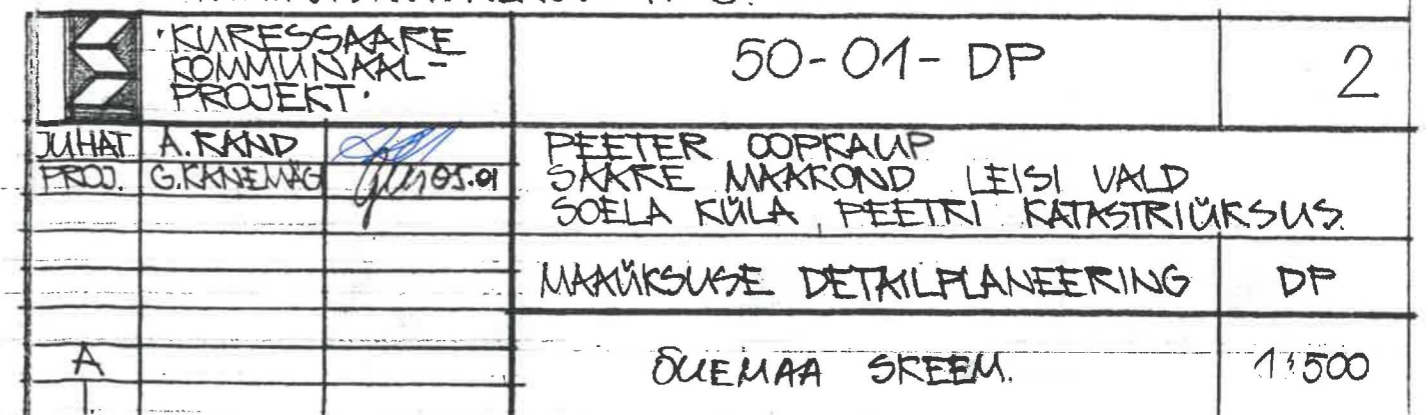 "KURESSAARE
KOMMUNAAL-
PROJEKT"
50-01-DP
2
JUHAT. A.RAND
PROJ. G.KANEMÄG 05.01
PEETER OOPKAUP
SAARE MAAKOND LEISI VALD
SOELA KÜLA, PEETRI KATASTRIÜKSUS.
MAAÜKSUSE DETAILPLANEERING
DP
A
ÕUEMAA SKEEM.
1:500